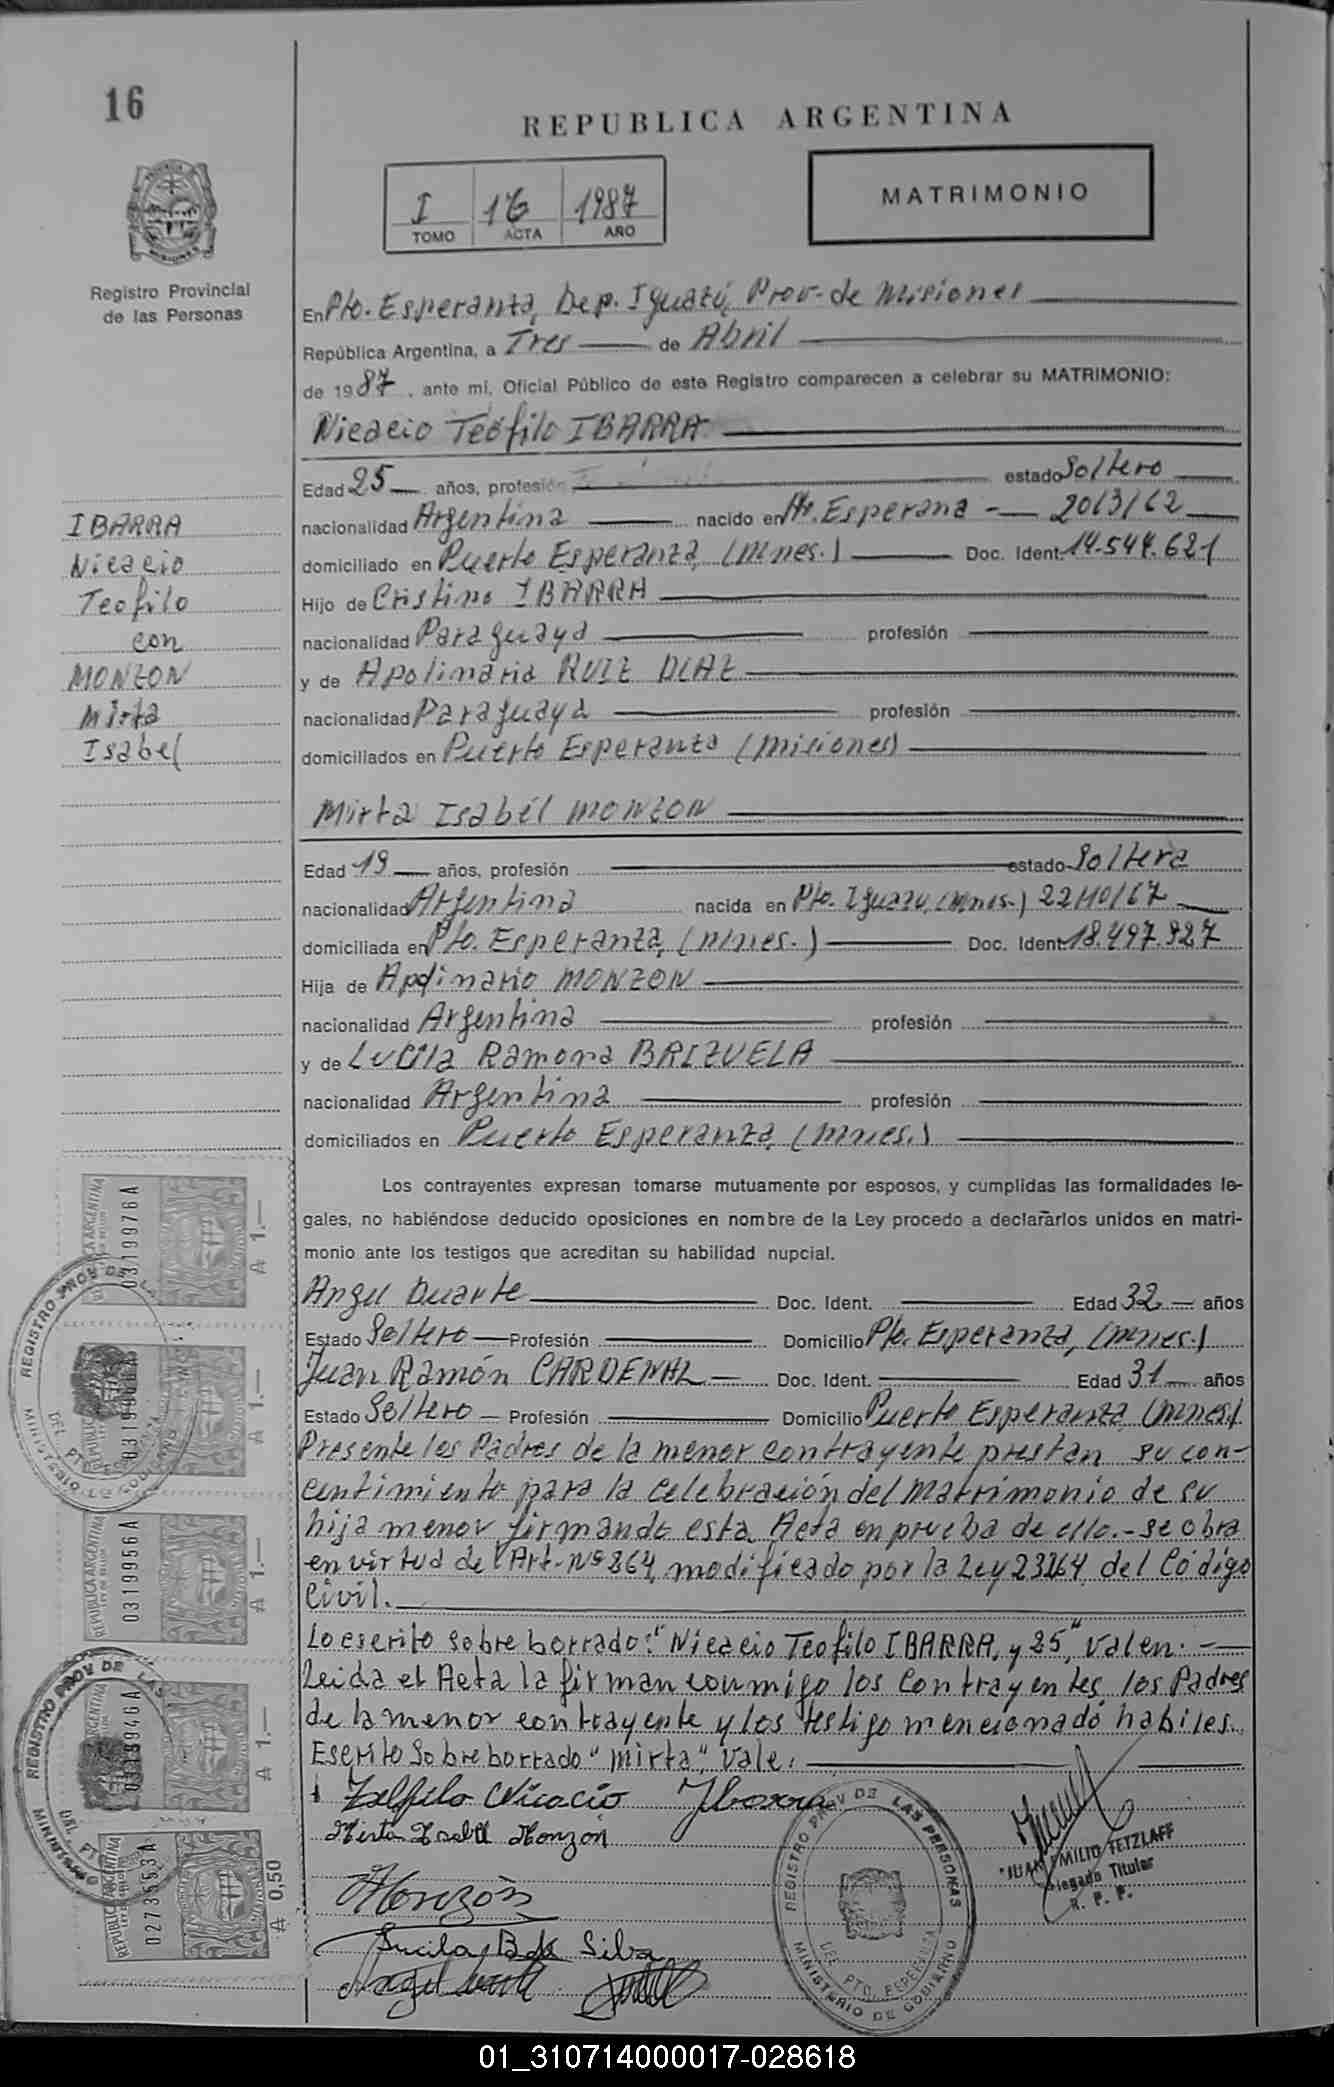 16
REPUBLICA ARGENTINA
I 16 1987
TOMO ACTA AÑO
MATRIMONIO
Registro Provincial
de las Personas
En Pto. Esperanza, Dep. Iguazú, Prov. de Misiones
República Argentina, a Tres de Abril
de 1987, ante mi, Oficial Público de este Registro comparecen a celebrar su MATRIMONIO:
Nicacio Teófilo IBARRA
Edad 25 años, profesión estado Soltero
nacionalidad Argentina nacido en Pto. Esperana - 20/3/62
domiciliado en Puerto Esperanza, (Mnes.) Doc. Ident. 14.544.621
Hijo de Cristino IBARRA
nacionalidad Paraguaya profesión
y de Apolinaria RUIZ DIAZ
nacionalidad Paraguaya profesión
domiciliados en Puerto Esperanza (Misiones)
IBARRA
Nicacio
Teofilo
con
MONZON
Mirta
Isabel
Mirta Isabél MONZON
Edad 19 años, profesión estado Soltera
nacionalidad Argentina nacida en Pto. Iguazu, (Mnes.) 22/10/67
domiciliada en Pto. Esperanza, (Mnes.) Doc. Ident. 18.497.927
Hija de Apolinario MONZON
nacionalidad Argentina profesión
y de Lucila Ramona BRIZUELA
nacionalidad Argentina profesión
domiciliados en Puerto Esperanza, (Mnes.)
Los contrayentes expresan tomarse mutuamente por esposos, y cumplidas las formalidades le-
gales, no habiéndose deducido oposiciones en nombre de la Ley procedo a declararlos unidos en matri-
monio ante los testigos que acreditan su habilidad nupcial.
Angel Duarte Doc. Ident. Edad 32 años
Estado Soltero Profesión Domicilio Pto. Esperanza, (Mnes.)
Juan Ramón CARDENAL Doc. Ident. Edad 31 años
Estado Soltero Profesión Domicilio Puerto Esperanza, (Mnes.)
Presente los Padres de la menor contrayente prestan su con-
centimiento para la celebración del Matrimonio de su
hija menor firmando esta Acta en prueba de ello.- Se obra
en virtud del Art. Nº 264, modificado por la Ley 23264, del Código
Civil.
Lo escrito sobre borrado: "Nicacio Teofilo IBARRA, y 25", Valen. -
Leida el Acta la firman conmigo los Contrayentes, los Padres
de la menor contrayente y los testigo mencionado habiles.
Escrito sobre borrado "Mirta", Vale.
Nicacio Ybarra
Mirta Isabel Monzón
Monzón
Lucila B de Silva
Angel Duarte
JUAN EMILIO TETZLAFF
Delegado Titular
R. P. P.
REGISTRO PROV DE LAS PERSONAS
DEL PTO. ESPERANZA
MINISTERIO DE GOBIERNO
REPUBLICA ARGENTINA
0319976A
A 1.—
REGISTRO PROV DE LA
MINISTERIO DE GOBIERNO
REPUBLICA ARGENTINA
A 1.—
REPUBLICA ARGENTINA
0319956A
A 1.—
REGISTRO PROV DE LAS
MINISTERIO
REPUBLICA ARGENTINA
0319946A
A 1.—
REPUBLICA ARGENTINA
0273553A
A 0,50
01_310714000017-028618